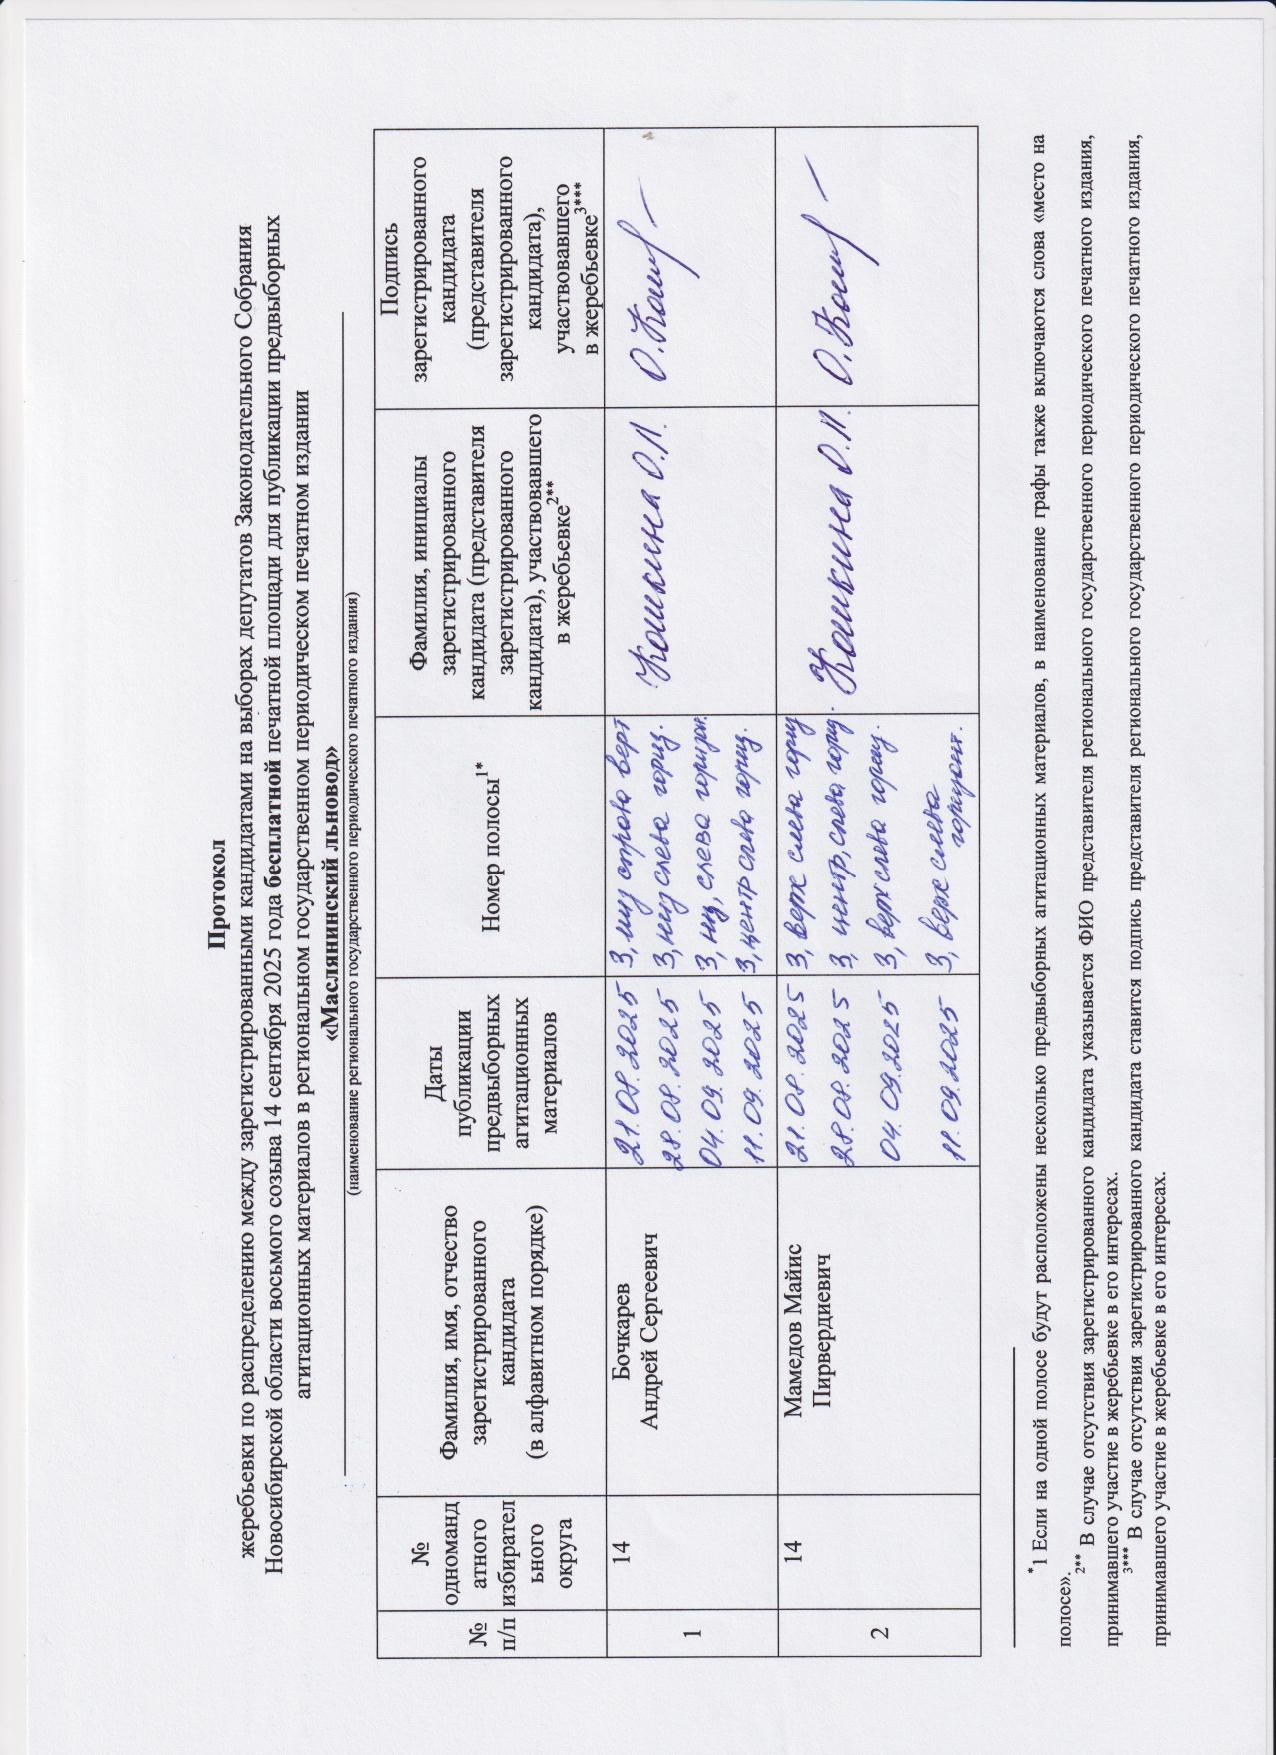 Протокол
жеребьевки по распределению между зарегистрированными кандидатами на выборах депутатов Законодательного Собрания
Новосибирской области восьмого созыва 14 сентября 2025 года бесплатной печатной площади для публикации предвыборных
агитационных материалов в региональном государственном периодическом печатном издании
«Маслянинский льновод»
(наименование регионального государственного периодического печатного издания)
№
п/п
№
одноманд
атного
избирател
ьного
округа
Фамилия, имя, отчество
зарегистрированного
кандидата
(в алфавитном порядке)
Даты
публикации
предвыборных
агитационных
материалов
Номер полосы1*
Фамилия, инициалы
зарегистрированного
кандидата (представителя
зарегистрированного
кандидата), участвовавшего
в жеребьевке2**
Подпись
зарегистрированного
кандидата
(представителя
зарегистрированного
кандидата),
участвовавшего
в жеребьевке3***
1
14
Бочкарев
Андрей Сергеевич
21.08.2025 3, низ справа верт
28.08.2025 3, низ слева гориз.
04.09.2025 3, низ, слева горизон.
11.09.2025 3, центр слева гориз.
Кошкина О.П.
О.Кош
2
14
Мамедов Майис
Пирвердиевич
21.08.2025 3, верх слева гориз
28.08.2025 3, центр, слева гориз.
04.09.2025 3, верх слева гориз.
11.09.2025 3, верх слева
горизонт.
Кошкина О.П.
О.Кош
*1 Если на одной полосе будут расположены несколько предвыборных агитационных материалов, в наименование графы также включаются слова «место на
полосе».
2** В случае отсутствия зарегистрированного кандидата указывается ФИО представителя регионального государственного периодического печатного издания,
принимавшего участие в жеребьевке в его интересах.
3*** В случае отсутствия зарегистрированного кандидата ставится подпись представителя регионального государственного периодического печатного издания,
принимавшего участие в жеребьевке в его интересах.